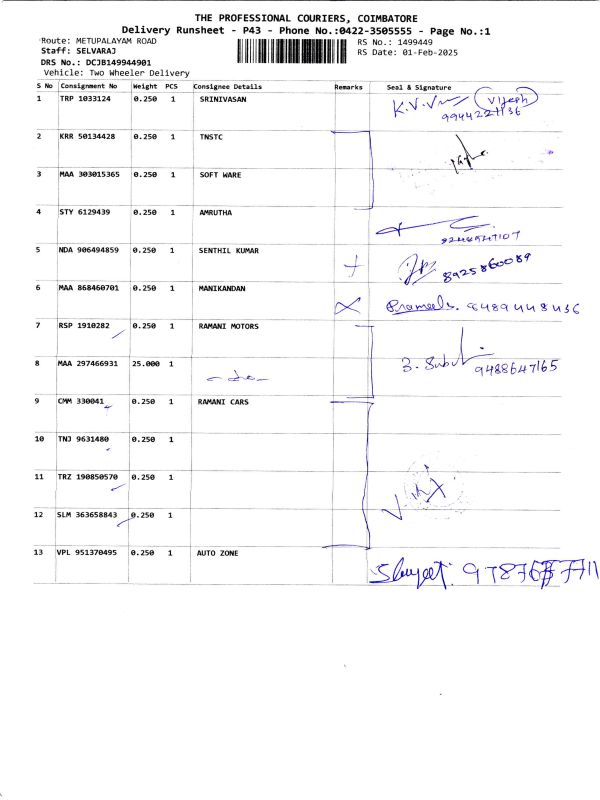 THE PROFESSIONAL COURIERS, COIMBATORE
Delivery Runsheet - P43 - Phone No.:0422-3505555 - Page No.:1
Route: METUPALAYAM ROAD RS No.: 1499449
Staff: SELVARAJ RS Date: 01-Feb-2025
DRS No.: DCJB149944901
Vehicle: Two Wheeler Delivery
S No Consignment No Weight PCS Consignee Details Remarks Seal & Signature
1 TRP 1033124 0.250 1 SRINIVASAN K.V. Vijesh
9944227136
2 KRR 50134428 0.250 1 TNSTC
3 MAA 303015365 0.250 1 SOFT WARE
4 STY 6129439 0.250 1 AMRUTHA
5 NDA 906494859 0.250 1 SENTHIL KUMAR 8925860089
6 MAA 868460701 0.250 1 MANIKANDAN Prameela. 9489448436
7 RSP 1910282 0.250 1 RAMANI MOTORS
8 MAA 297466931 25.000 1 - do - 9488647165
9 CMM 330041 0.250 1 RAMANI CARS
10 TNJ 9631480 0.250 1
11 TRZ 190850570 0.250 1
12 SLM 363658843 0.250 1
13 VPL 951370495 0.250 1 AUTO ZONE